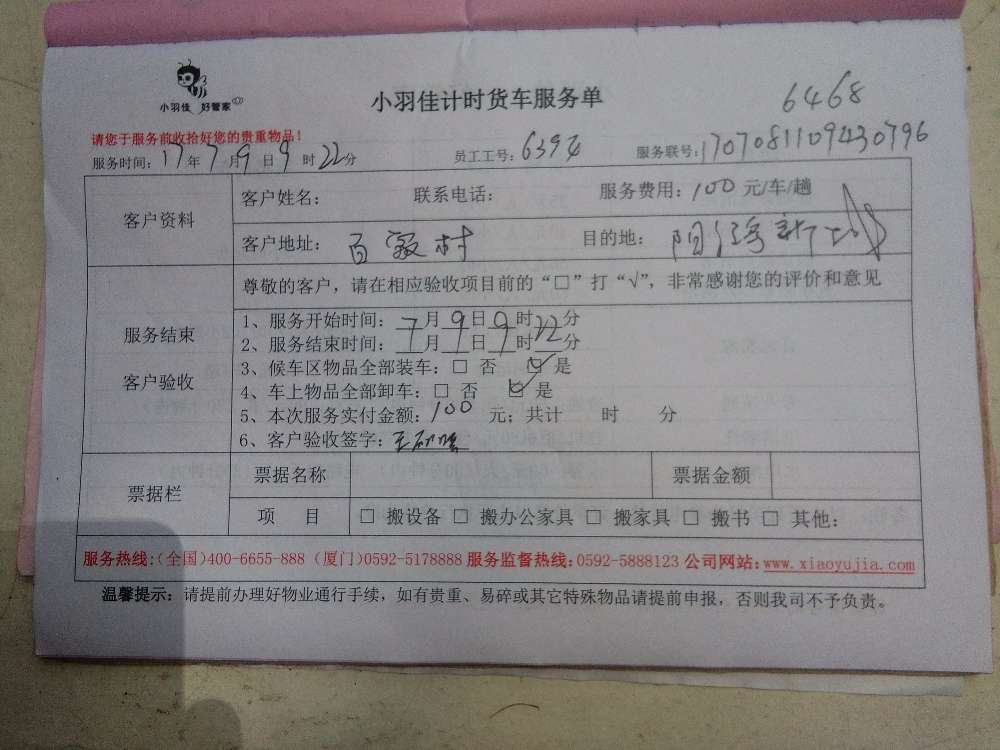 小羽佳 好管家
小羽佳计时货车服务单
6468
请您于服务前收拾好您的贵重物品!
服务时间: 17年7月9日9时22分 员工工号: 6394 服务联号: 1707081109430796
客户资料
客户姓名: 联系电话: 服务费用: 100元/车/趟
客户地址: 百家村 目的地: 阳
服务结束
客户验收
尊敬的客户,请在相应验收项目前的“□”打“√”,非常感谢您的评价和意见
1、服务开始时间: 7月9日9时22分
2、服务结束时间: 7月9日9时22分
3、候车区物品全部装车: □ 否 ☑ 是
4、车上物品全部卸车: □ 否 ☑ 是
5、本次服务实付金额: 100 元; 共计 时 分
6、客户验收签字: 王
票据栏
票据名称 票据金额
项 目 □ 搬设备 □ 搬办公家具 □ 搬家具 □ 搬书 □ 其他:
服务热线:(全国)400-6655-888 (厦门)0592-5178888 服务监督热线: 0592-5888123 公司网站: www.xiaoyujia.com
温馨提示: 请提前办理好物业通行手续, 如有贵重、易碎或其它特殊物品请提前申报, 否则我司不予负责。